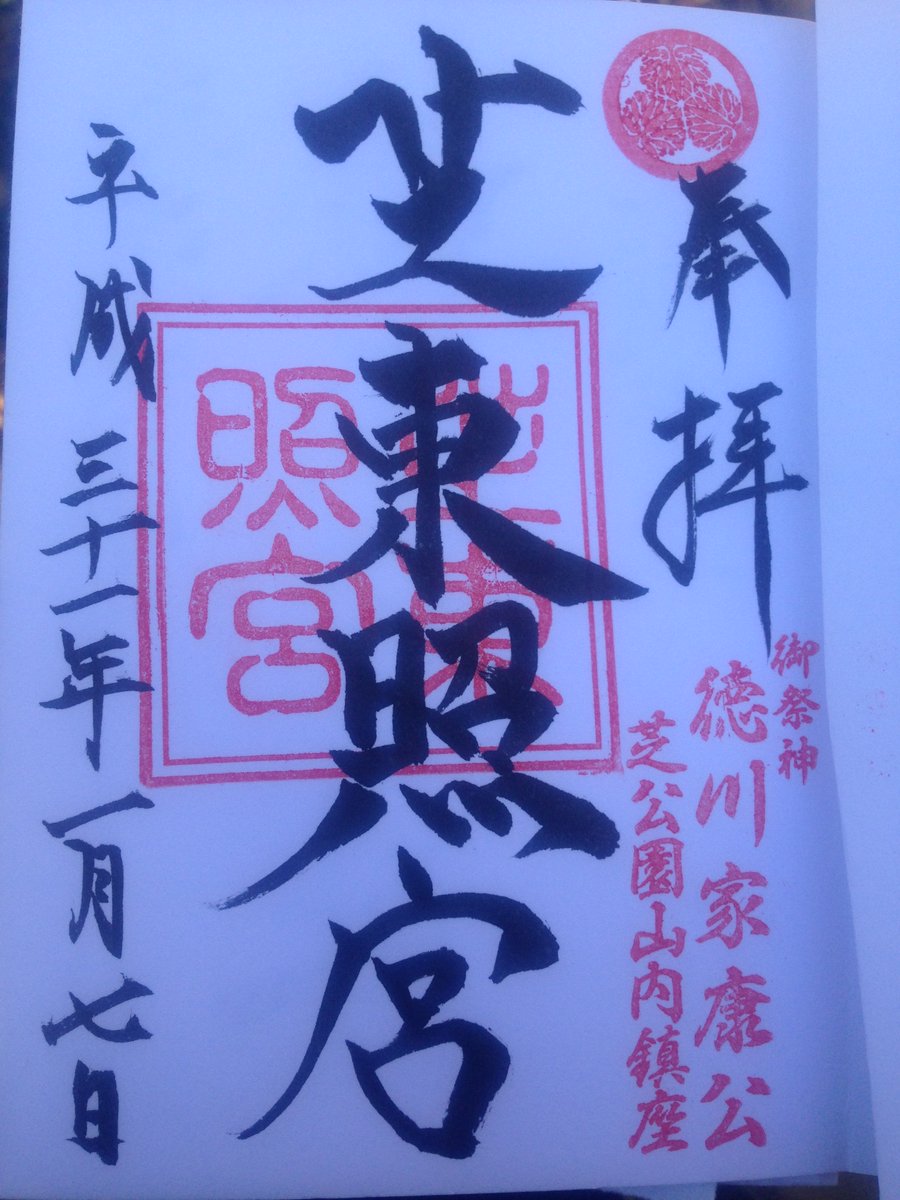 奉拝
御祭神
徳川家康公
芝公園山内鎮座
芝東照宮
芝東照宮
平成三十一年一月七日